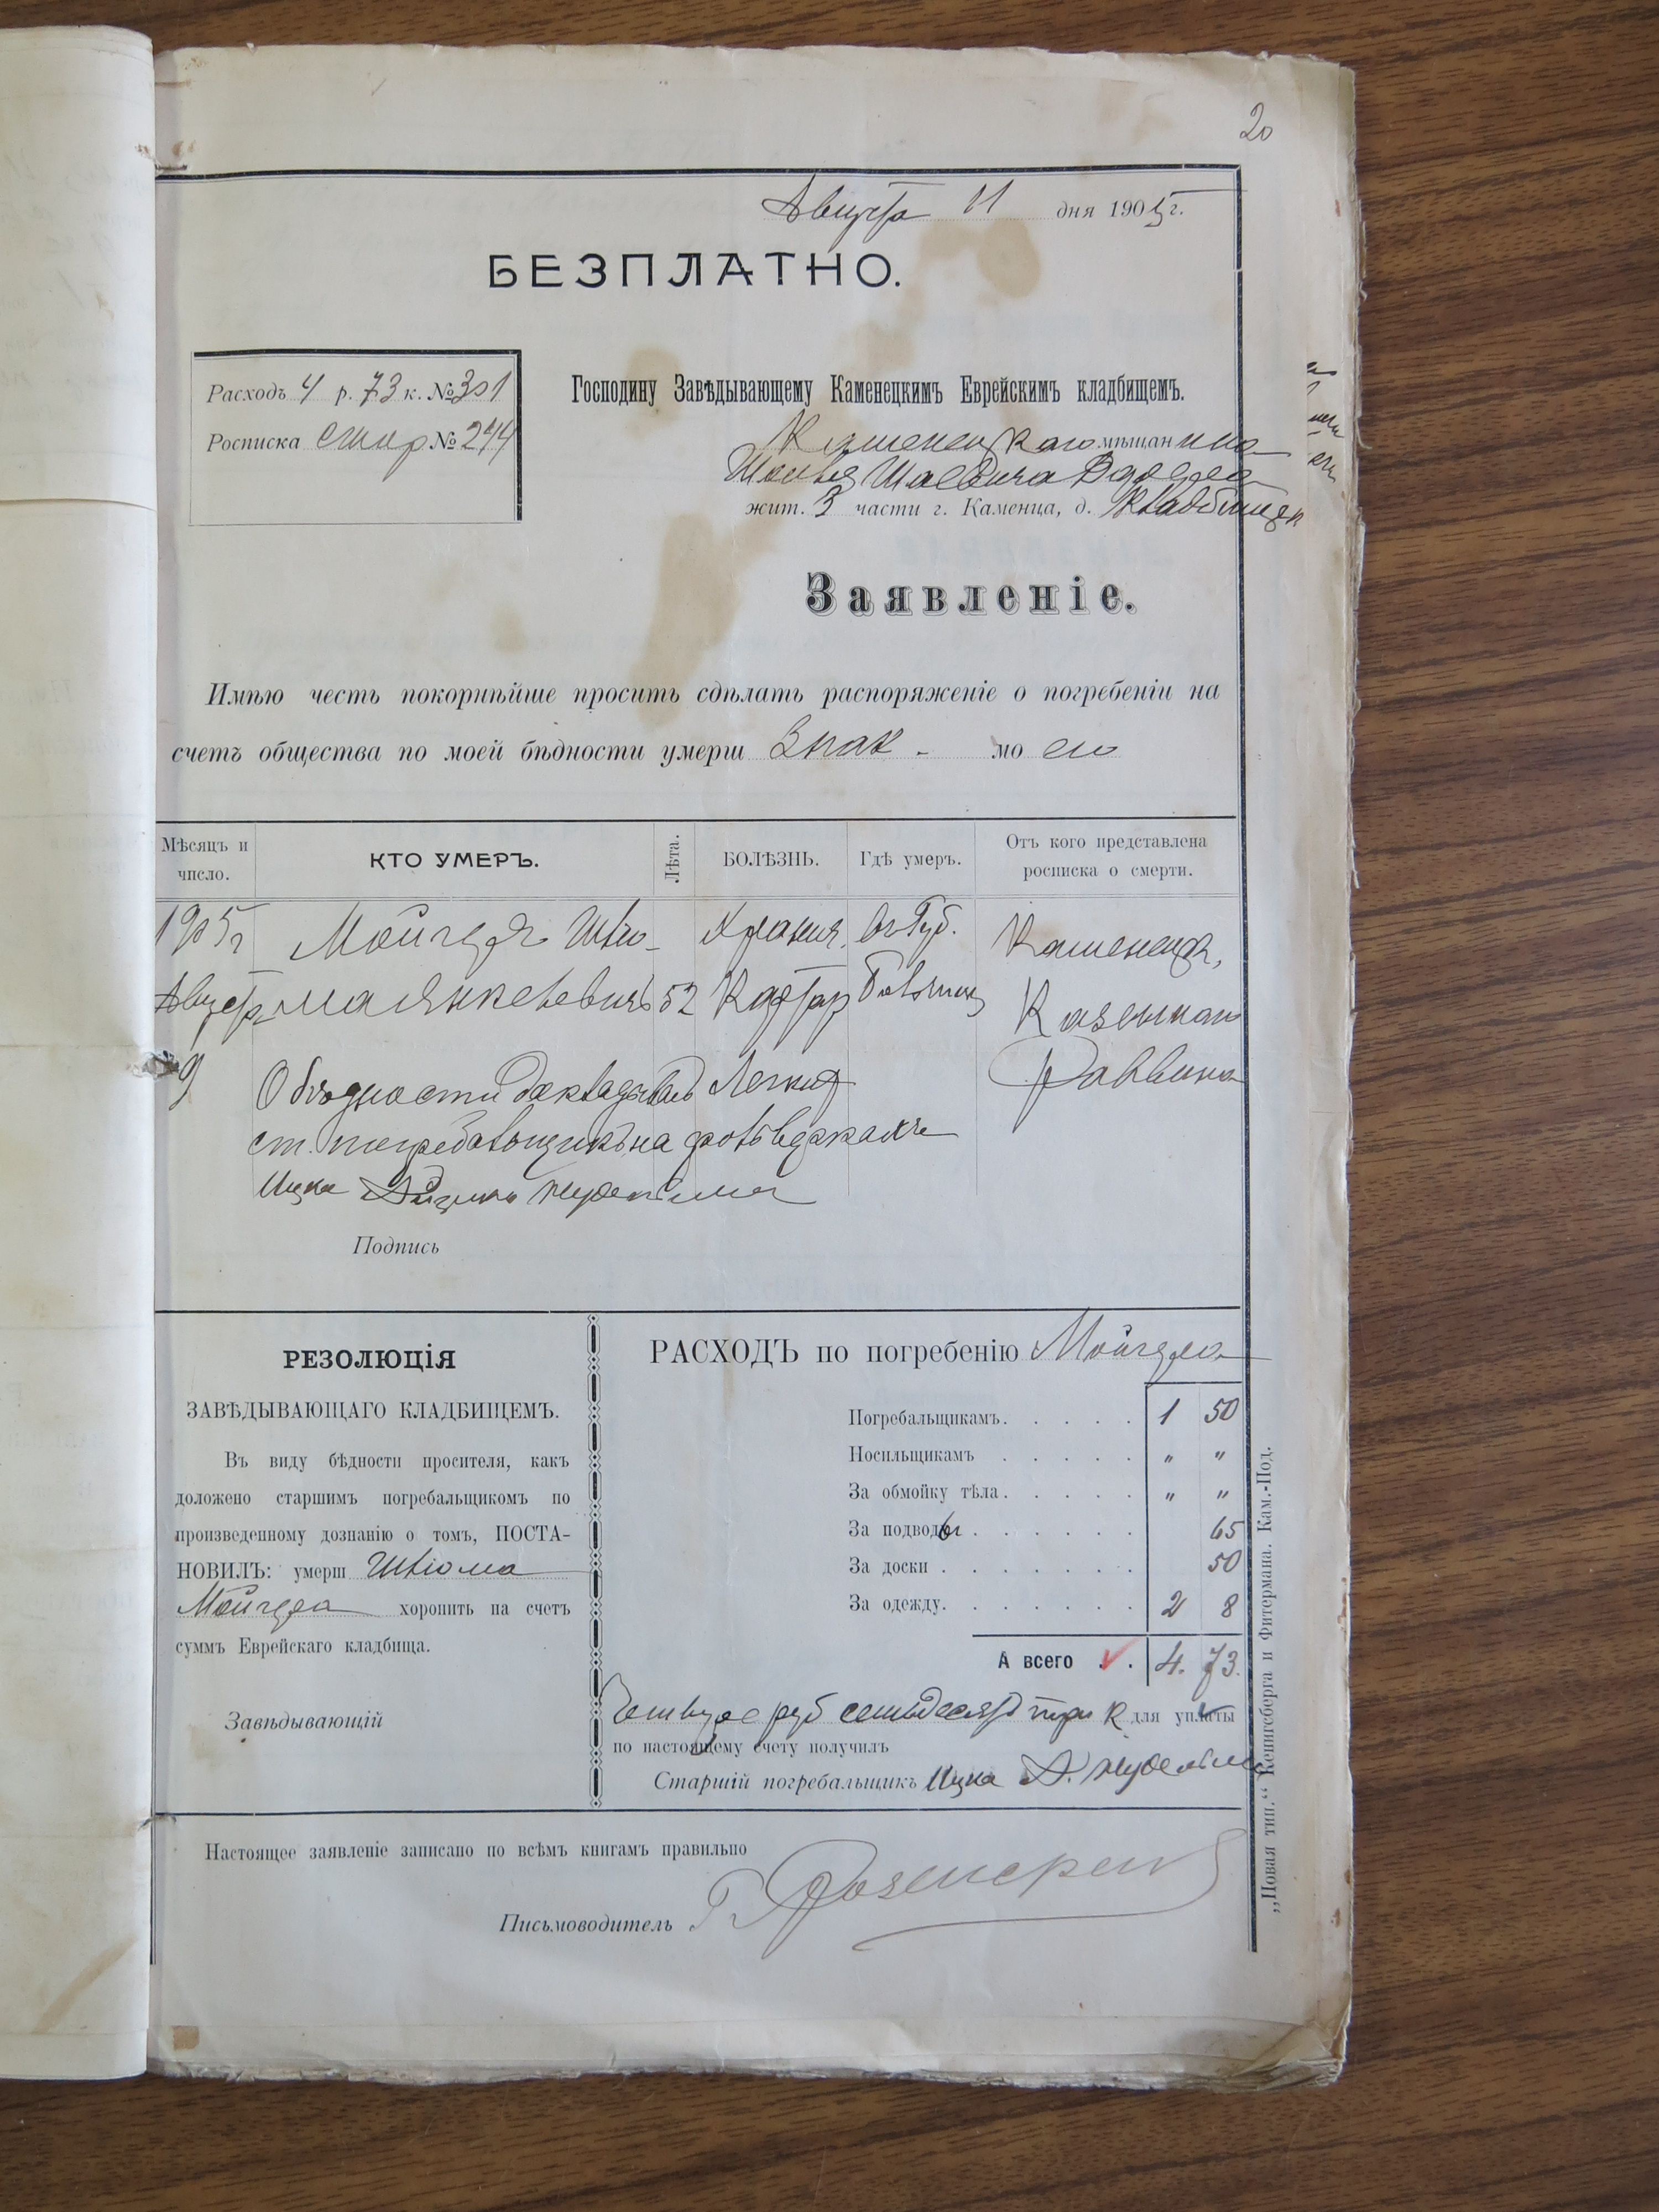 20
Августа 11 дня 1905 г.
БЕЗПЛАТНО.
Расходъ 4 р. 73 к. № 301
Росписка смер № 244
Господину Завѣдывающему Каменецкимъ Еврейскимъ кладбищемъ.
Каменецкаго мѣщанина
жит. 3 части г. Каменца, д. Кладбищен
Заявленіе.
Имѣю честь покорнѣйше просить сдѣлать распоряженіе о погребеніи на
счетъ общества по моей бѣдности умерш Знак - мо его
Мѣсяцъ и число.
КТО УМЕРЪ.
Лѣта.
БОЛѢЗНЬ.
Гдѣ умеръ.
Отъ кого представлена росписка о смерти.
1905 г Мойгера Шлё- Хранич. въ Губ. Каменецк.
Август ма Янкелевичъ 52 Катар Больниц Казеннаго
9 Легких Раввина
О бѣдности докладывалъ
ст. погребальщикъ на
Ицка
Подпись
РЕЗОЛЮЦІЯ
ЗАВѢДЫВАЮЩАГО КЛАДБИЩЕМЪ.
Въ виду бѣдности просителя, какъ
доложено старшимъ погребальщикомъ по
произведенному дознанію о томъ, ПОСТА-
НОВИЛЪ: умерш Шлёма
Мойгера хоронить на счетъ
суммъ Еврейскаго кладбища.
Завѣдывающій
РАСХОДЪ по погребенію Мойгера
Погребальщикамъ. . . . . 1 50
Носильщикамъ . . . . . " "
За обмойку тѣла . . . . . " "
За подводы . . . . . . 65
За доски . . . . . . . 50
За одежду. . . . . . . 2 8
А всего . . 4. 73.
Четыре руб семьдесят три к для уплаты
по настоящему счету получилъ
Старшій погребальщикъ Ицка
Настоящее заявленіе записано по всѣмъ книгамъ правильно
Письмоводитель
„Новая тип." Кенигсберга и Фитермана. Кам.-Под.